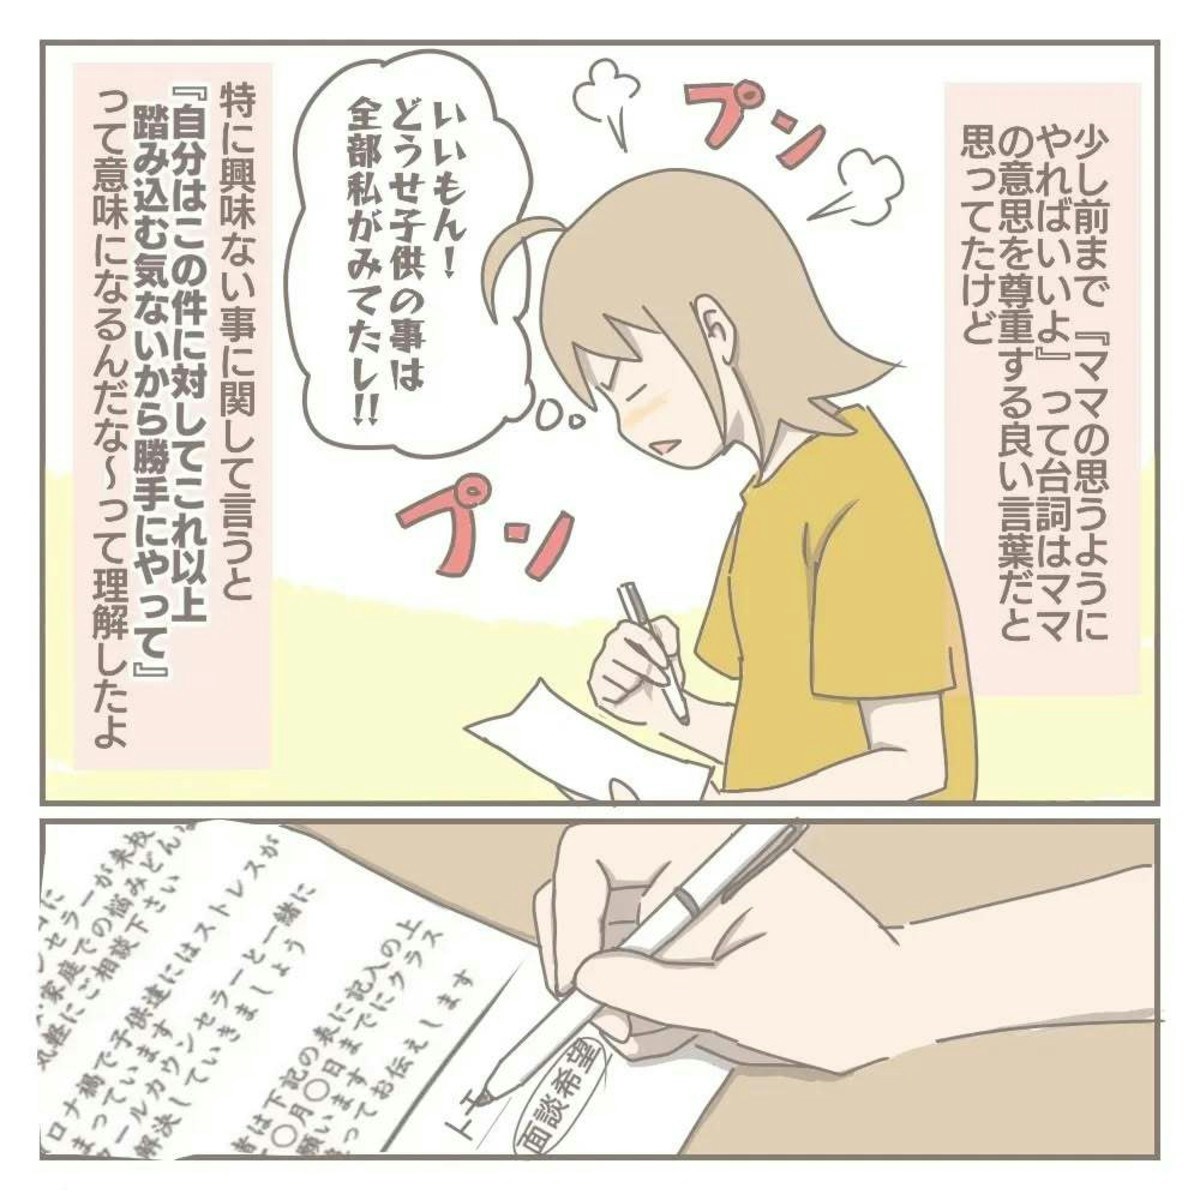 少し前まで『ママの思うように
やればいいよ』って台詞はママ
の意思を尊重する良い言葉だと
思ってたけど
プン
いいもん！
どうせ子供の事は
全部私がみてたし!!
プン
特に興味ない事に関して言うと
『自分はこの件に対してこれ以上
踏み込む気ないから勝手にやって』
って意味になるんだな〜って理解したよ
セラーが来校
家庭での悩みどん
気軽にご相談下さい
ロナ禍で子供達にはストレスが
まっています
ールカウンセラーと一緒に
解決していきましょう
者は下記の表に記入の上
〇月〇日までにクラス
願います
ってお伝えします
面談希望
トモ